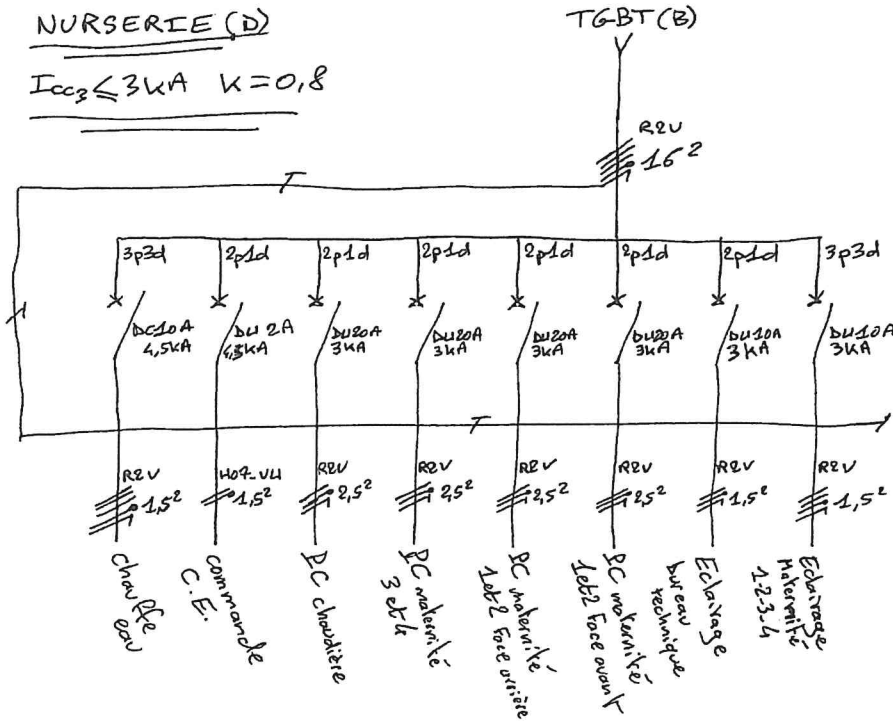 NURSERIE (D)
Icc3 ≤ 3kA K=0,8
TGBT (B)
R2V
16²
T
3p3d 2p1d 2p1d 2p1d 2p1d 2p1d 2p1d 3p3d
DC10A DU 2A DU20A DU20A DU20A DU20A DU10A DU10A
4,5kA 4,5kA 3kA 3kA 3kA 3kA 3kA 3kA
T
R2V H07-VU R2V R2V R2V R2V R2V R2V
1,5² 1,5² 2,5² 2,5² 2,5² 2,5² 1,5² 1,5²
chauffe
eau
commande
C.E.
PC chaudière
PC maternité
3 et 4
PC maternité
1et2 Face arrière
PC maternité
1et2 Face avant
Eclairage
bureau
technique
Eclairage
Maternité
1-2-3-4